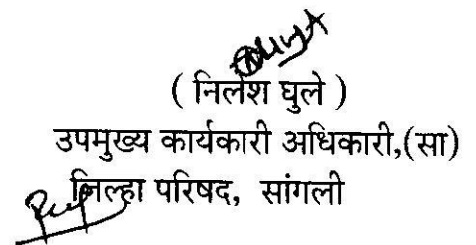 ( निलेश घुले )
उपमुख्य कार्यकारी अधिकारी,(सा)
जिल्हा परिषद, सांगली